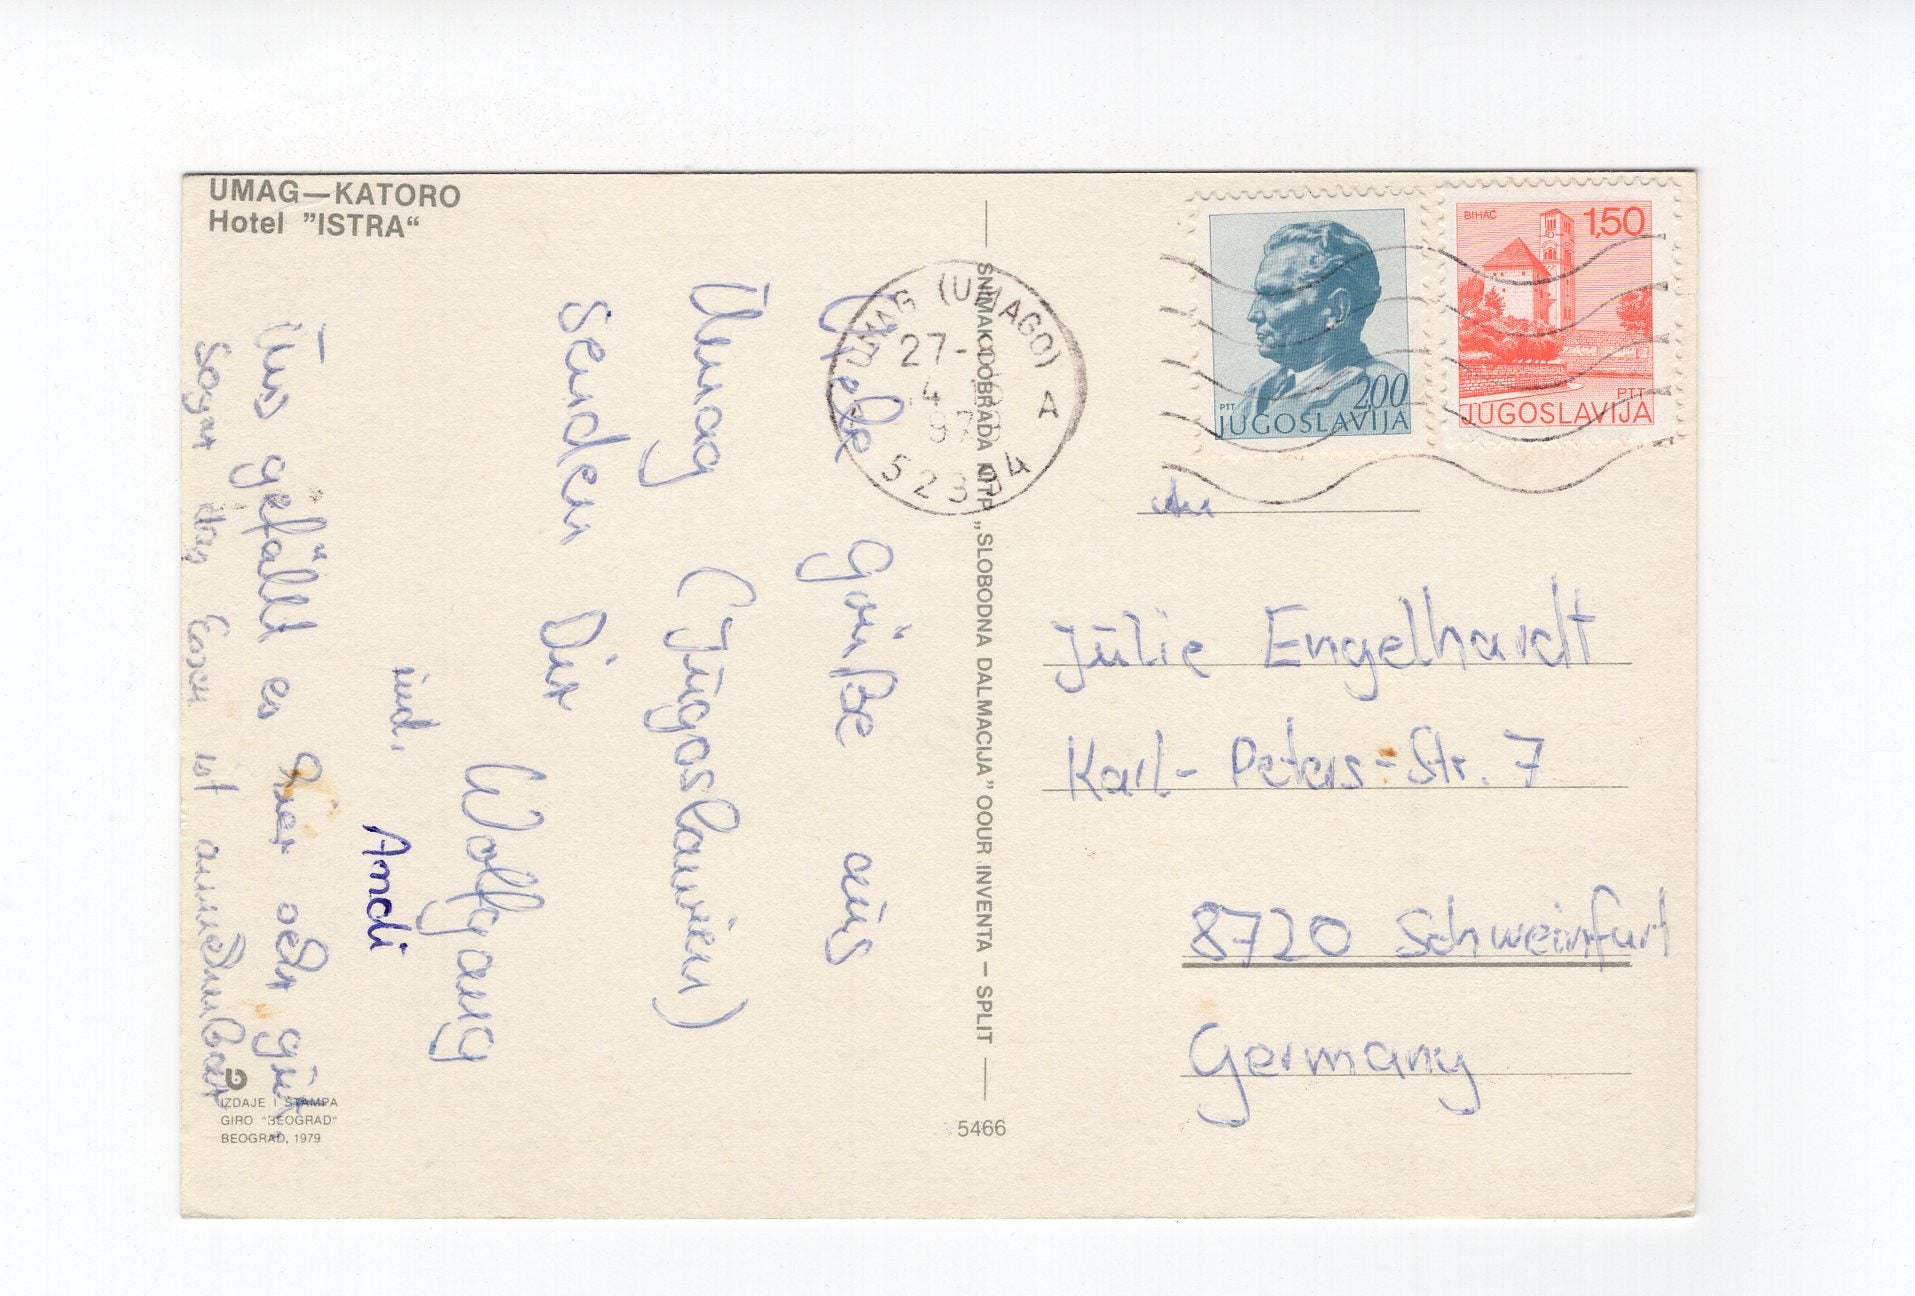 UMAG—KATORO
Hotel "ISTRA"
Viele Grüße aus
Umag (Jugoslawien)
senden Dir
Wolfgang
und.
Andi
Uns gefällt es hier sehr gut.
Sogar das Essen ist annehmbar
IZDAJE I ŠTAMPA
GIRO "BEOGRAD"
BEOGRAD, 1979
SNIMAK DOBRADA NTP „SLOBODNA DALMACIJA" OOUR INVENTA – SPLIT
5466
UMAG (UMAGO)
27-
A
52394
PTT
200
JUGOSLAVIJA
BIHAĆ
1,50
PTT
JUGOSLAVIJA
An
Julie Engelhardt
Karl-Peters-Str. 7
8720 Schweinfurt
Germany